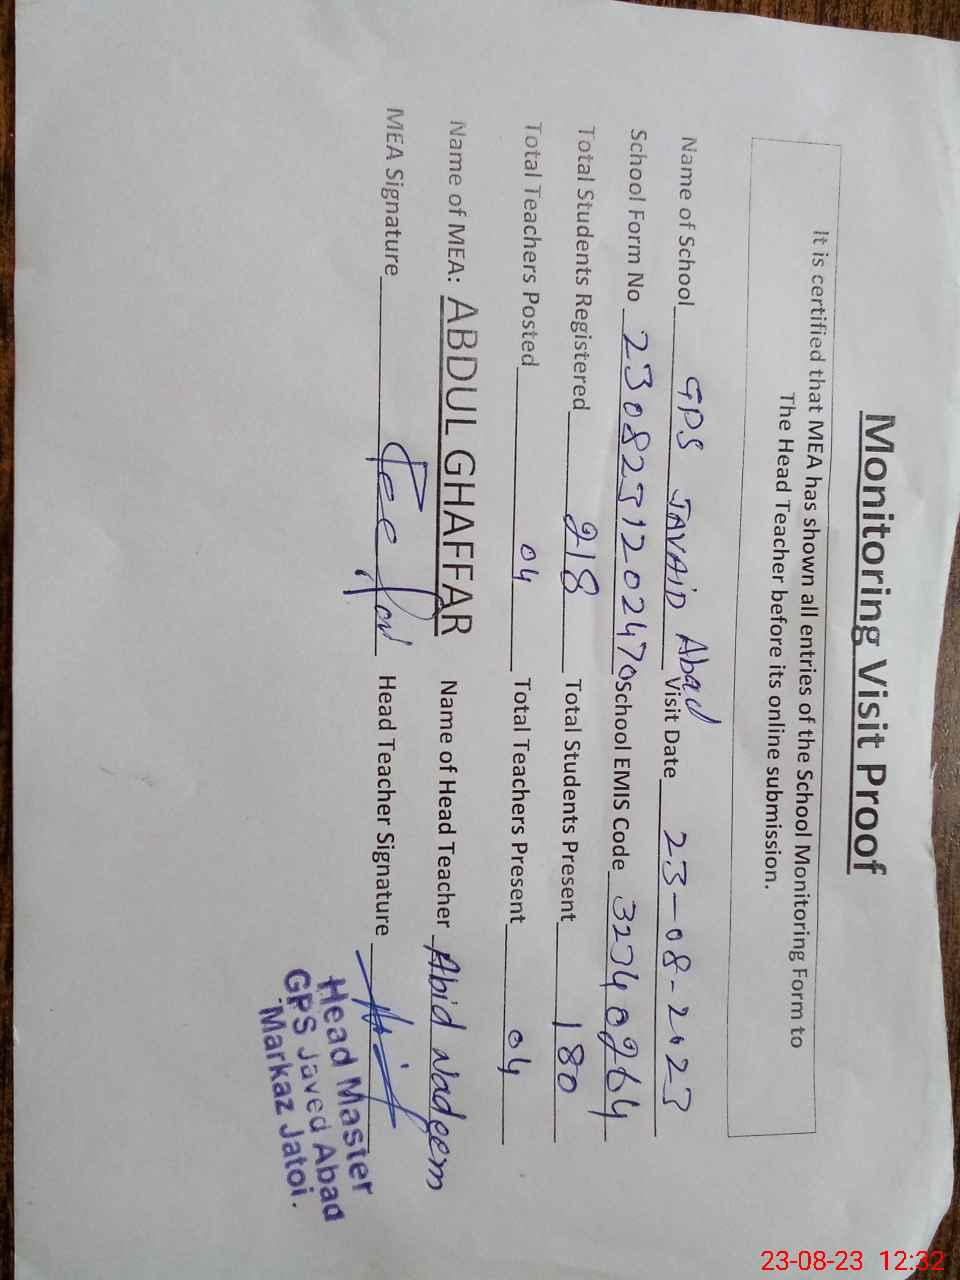 Monitoring Visit Proof
It is certified that MEA has shown all entries of the School Monitoring Form to
The Head Teacher before its online submission.
Name of School GPS JAVAID Abad Visit Date 23-08-2023
School Form No 2308231202470 School EMIS Code 32340264
Total Students Registered 218 Total Students Present 180
Total Teachers Posted 04 Total Teachers Present 04
Name of MEA: ABDUL GHAFFAR Name of Head Teacher Abid Nadeem
MEA Signature Head Teacher Signature
Head Master
GPS Javed Abad
Markaz Jatoi.
23-08-23 12:32